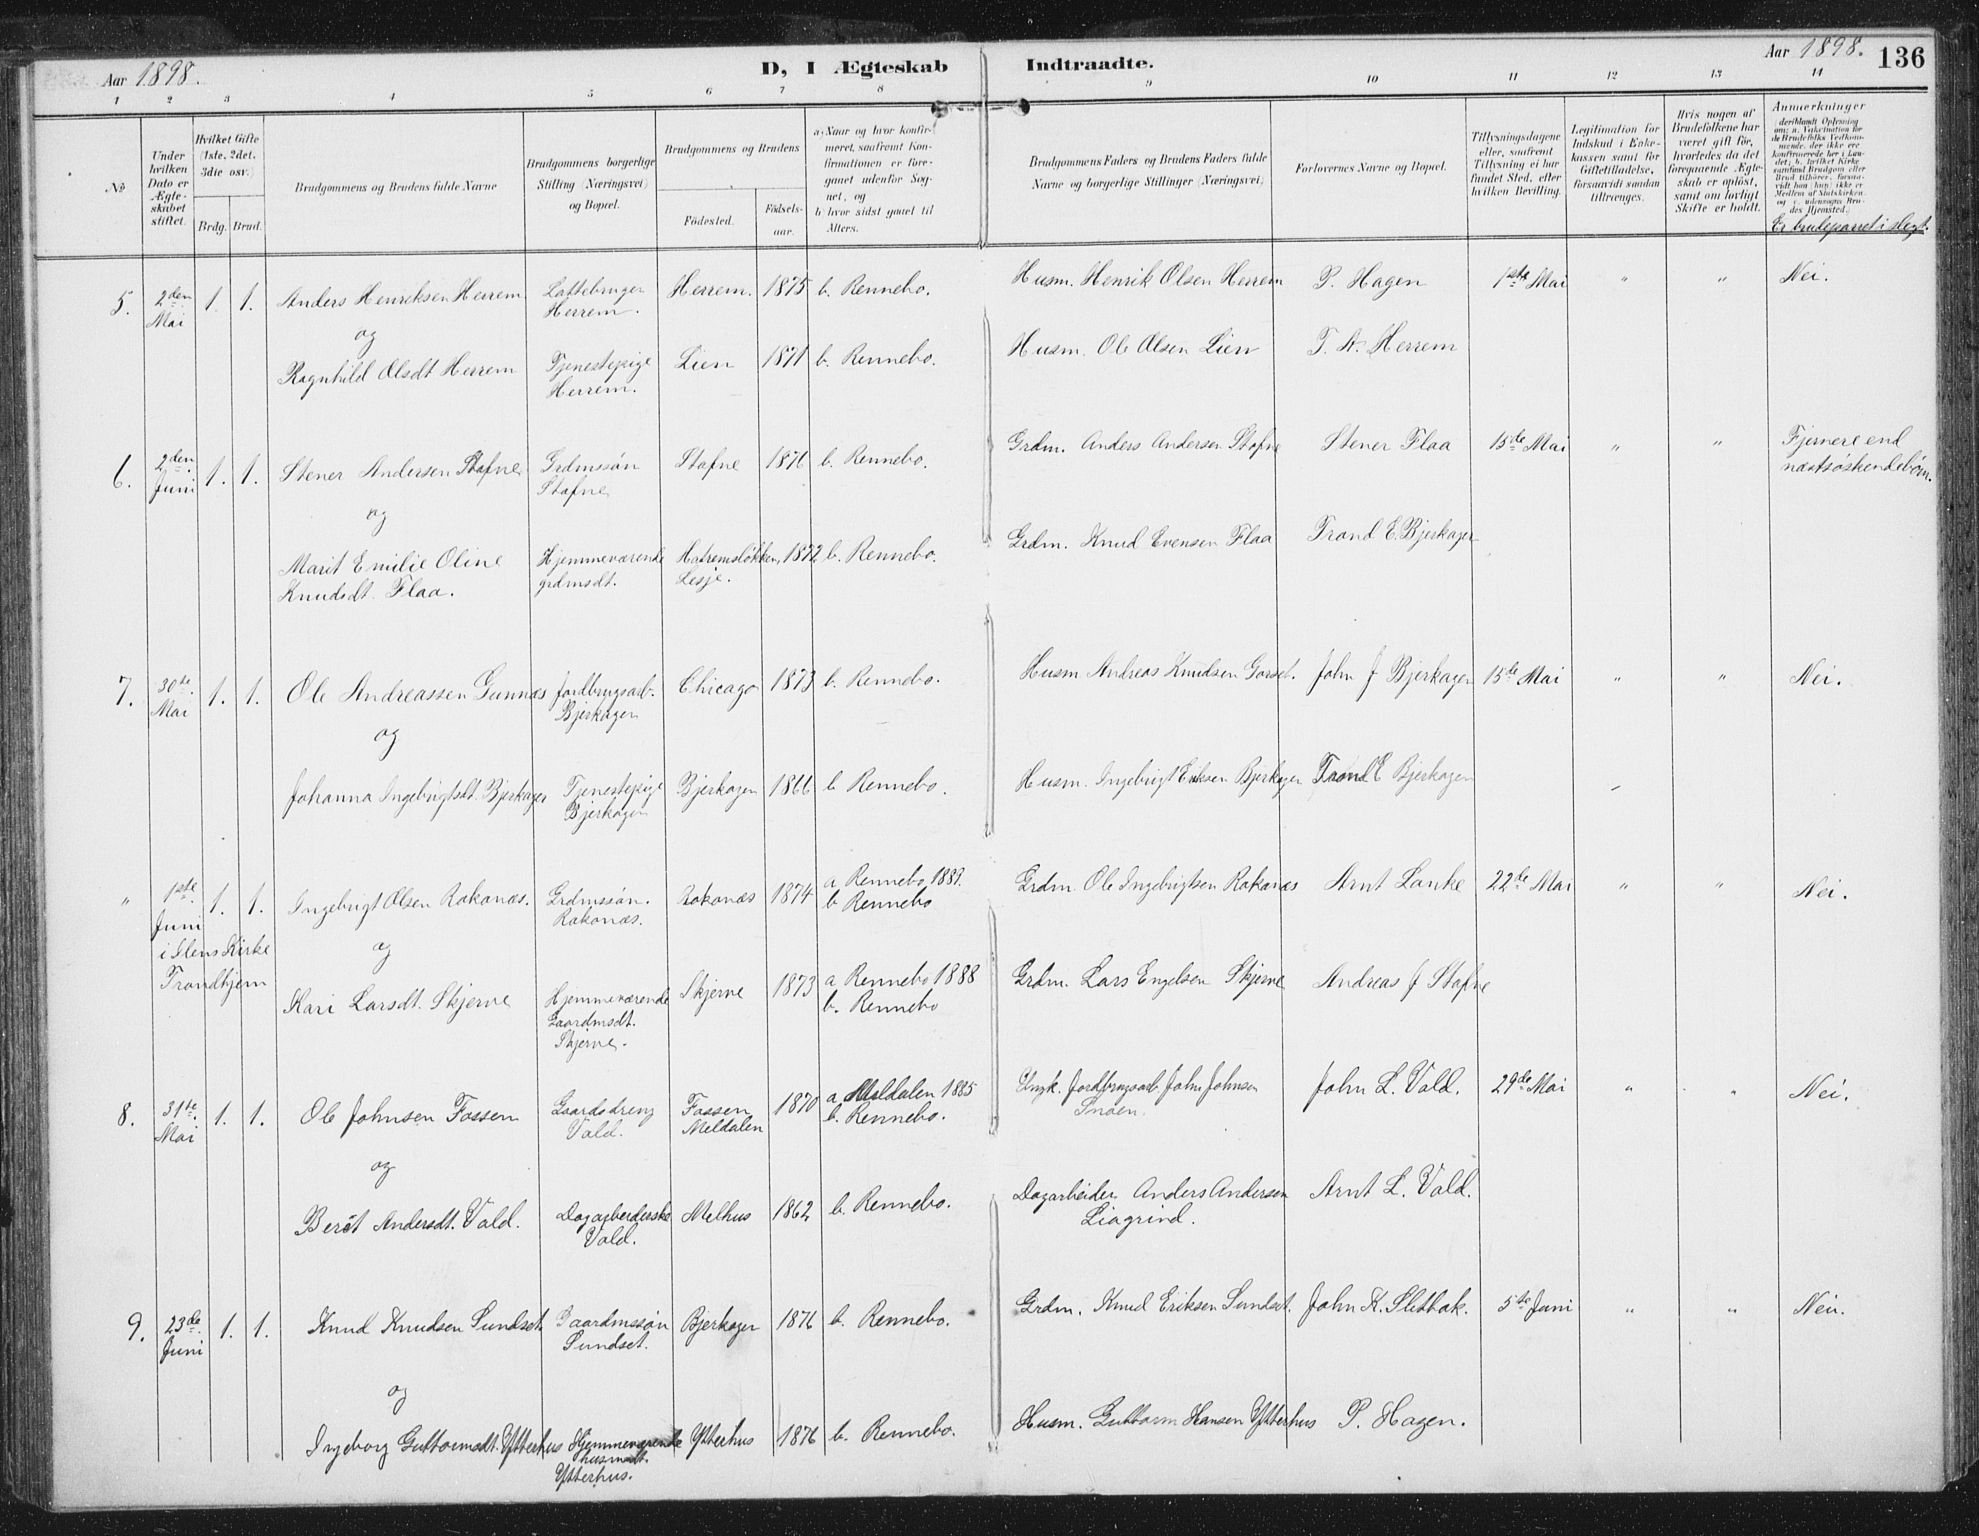 Aar 1898.
D, I Ægteskab Indtraadte.
Aar 1898.
136
1 2 3 4 5 6 7 8 9 10 11 12 13 14
No
Under hvilken Dato er Ægteskabet stiftet.
Hvilket Gifte (1ste, 2det, 3die osv.)
Brdg. Brud.
Brudgommens og Brudens fulde Navne
Brudgommens borgerlige Stilling (Næringsvei) og Bopæl.
Brudgommens og Brudens
Fødested.
Fødselsaar.
a) Naar og hvor konfirmeret, saafremt Konfirmationen er foregaaet udenfor Sognet, og
b) hvor sidst gaaet til Alters.
Brudgommens Faders og Brudens Faders fulde Navne og borgerlige Stillinger (Næringsvei)
Forlovernes Navne og Bopæl.
Tillysningsdagene eller, saafremt Tillysning ei har fundet Sted, efter hvilken Bevilling.
Legitimation for Indskud i Enkekassen samt for Giftetilladelse, forsaavidt saadan tiltrænges.
Hvis nogen af Brudefolkene har været gift før, hvorledes da det foregaaende Ægteskab er opløst, samt om lovligt Skifte er holdt.
Anmærkninger
deriblandt Oplysning om: a. Vakcination for de Brudefolks Vedkommende, der ikke ere konfirmerede her i Landet; b. hvilket Kirkesamfund Brudgom eller Brud tilhører, forsaavidt han (hun) ikke er Medlem af Statskirken og c. udensogns Brudes Hjemsted.
Er brudeparret i slegt.
5. 2den Mai 1. 1. Anders Henriksen Herrem Løftebruger Herrem. Herrem. 1875 b. Rennebo. Husm. Henrik Olsen Herrem P. Hagen 1ste Mai " " Nei.
og
Ragnhild Olsdt Herrem Tjenestepige Herrem. Lien 1871 b. Rennebo. Husm. Ole Olsen Lien T. A. Herrem
6. 2den Juni 1. 1. Stener Andersen Stafne Grdmssøn Stafne Stafne 1876 b. Rennebo. Grdm. Anders Andersen Stafne Stener Flaa 15de Mai " " Fjernere end næstsøskendebørn.
og
Marit Emilie Oline Knudsdt. Flaa. Hjemmeværende grdmsdt. Hatremsløkken, Lesje. 1872 b. Rennebo. Grdm. Knud Evensen Flaa Trond E. Bjerkager
7. 30te Mai 1. 1. Ole Andreassen Gunnes Jordbrugsarb. Bjerkagen Chicago 1873 b. Rennebo. Husm Andreas Knudsen Gorset. John J Bjerkagen 15de Mai " " Nei.
og
Johanna Ingebrigtsdt. Bjerkager Tjenestepige Bjerkagen Bjerkagen 1866 b Rennebo. Husm. Ingebrigt Eriksen Bjerkagen Trond E Bjerkagen "
" 1ste Juni i Ilens Kirke Trondhjem 1. 1. Ingebrigt Olsen Rokones. Grdmssøn. Rokonæs. Rokonæs 1874 a Rennebo 1889. b Rennebo Grdm. Ole Ingebrigtsen Rokones Arnt Lanke 22de Mai " " Nei.
og
Kari Larsdt. Skjerve Hjemmeværende Gaardmsdt. Skjerve. Skjerve 1873 a Rennebo 1888 b. Rennebo Grdm. Lars Engelsen Skjerve Andreas J Stafne
8. 31te Mai 1. 1. Ole Johnsen Fossen Gaardsdreng Vold. Fossen Meldalen 1870 a Meldalen 1885 b. Rennebo. Ungk. Jordbrugsarb. John Johnsen Snoen. John L. Vold. 29de Mai " " Nei.
og
Berit Andersdt. Vold. Dagarbeiderske Vold. Melhus 1862 b. Rennebo. Dagarbeider Anders Andersen Liagrind. Arnt L. Vold.
9. 23de Juni 1. 1. Knud Knudsen Sundset. Gaardmssøn Sundset. Bjerkager 1876 b. Rennebo. Grdm. Knud Eriksen Sundset. John K. Sletbak. 5te Juni " " Nei.
og
Ingeborg Guttormsdt. Ytterhus Hjemmeværende husmsdt. Ytterhus. Ytterhus 1876 b. Rennebo. Husm. Guttorm Hansen Ytterhus P. Hagen.